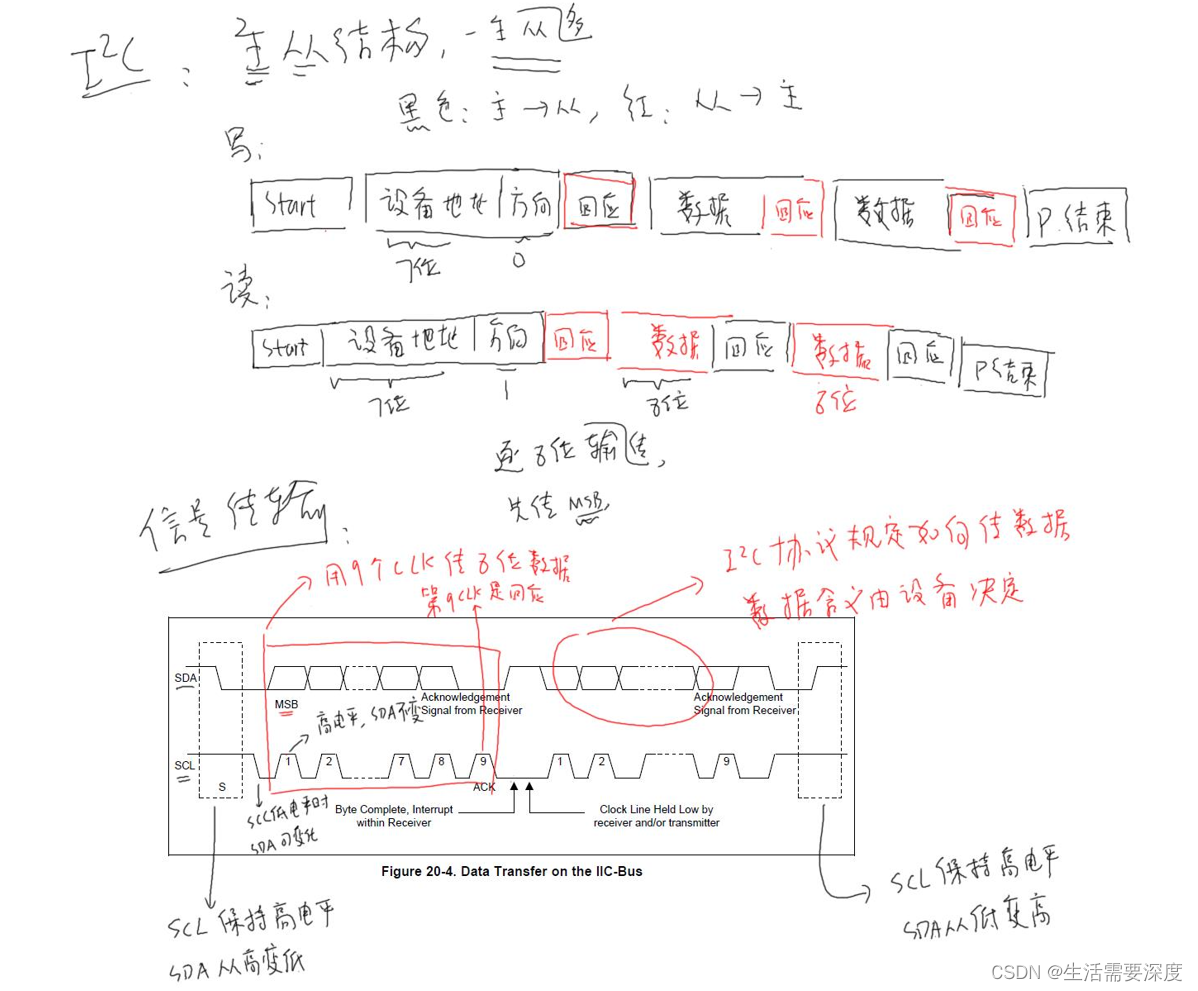 I²C： 主从结构，一主从多
黑色：主→从，红：从→主
写：
Start 设备地址 方向 回应 数据 回应 数据 回应 P.结束
7位 0
读：
Start 设备地址 方向 回应 数据 回应 数据 回应 P结束
7位 1 8位 8位
逐8位输传，
先传MSB，
信号传输：
用9个CLK传8位数据
第9CLK是回应
I²C协议规定如何传数据
数据含义由设备决定
SDA
MSB
Acknowledgement
Signal from Receiver
Acknowledgement
Signal from Receiver
高电平，SDA不变
SCL
S
1 2 7 8 9 1 2 9
ACK
SCL低电平时
SDA可变化
Byte Complete, Interrupt
within Receiver
Clock Line Held Low by
receiver and/or transmitter
Figure 20-4. Data Transfer on the IIC-Bus
SCL保持高电平
SDA从高变低
SCL保持高电平
SDA从低变高
CSDN @生活需要深度